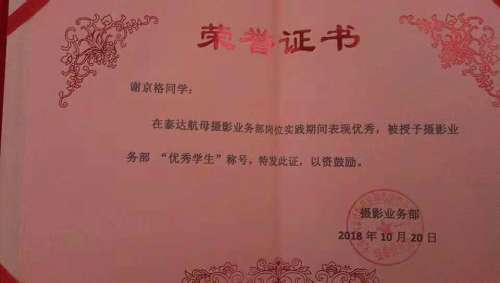 荣誉证书
谢京格同学：
在泰达航母摄影业务部岗位实践期间表现优秀，被授予摄影业
务部 “优秀学生”称号，特发此证，以资鼓励。
摄影业务部
2018 年 10 月 20 日